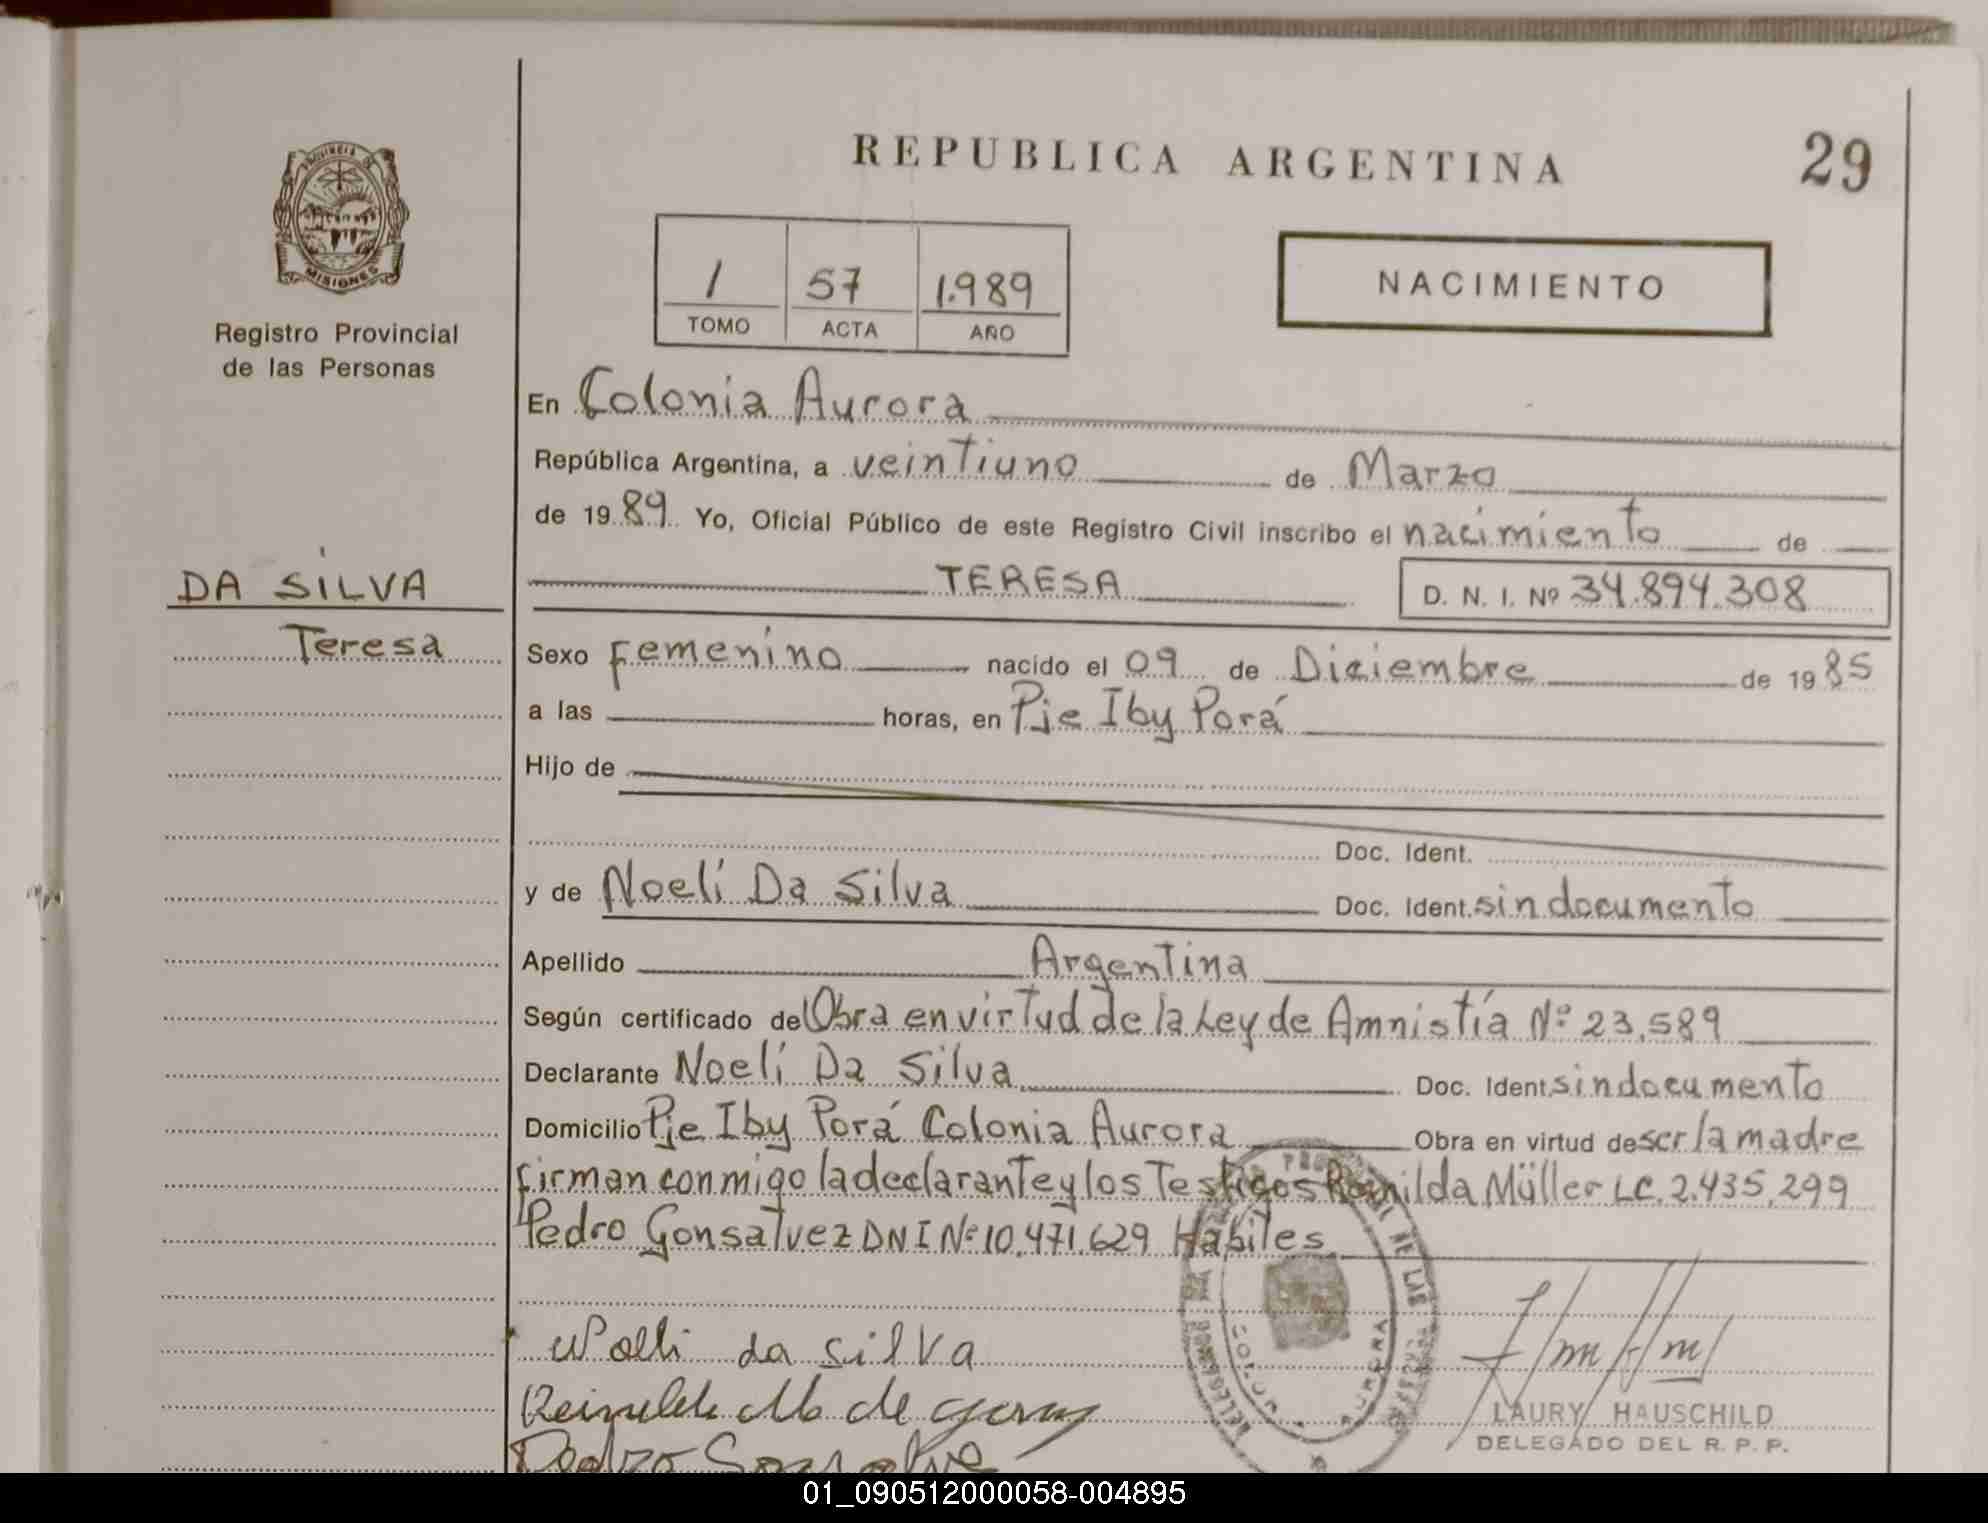 REPUBLICA ARGENTINA
29
PROVINCIA DE
MISIONES
Registro Provincial
de las Personas
1 57 1.989
TOMO ACTA AÑO
NACIMIENTO
En Colonia Aurora
República Argentina, a veintiuno de Marzo
de 1989 Yo, Oficial Público de este Registro Civil inscribo el nacimiento de
DA SILVA
Teresa
TERESA D. N. I. Nº 34.894.308
Sexo Femenino nacido el 09 de Diciembre de 1985
a las horas, en Pje Iby Porá
Hijo de
Doc. Ident.
y de Noelí Da Silva Doc. Ident. sin documento
Apellido Argentina
Según certificado de Obra en virtud de la Ley de Amnistía Nº 23.589
Declarante Noelí Da Silva Doc. Ident. sin documento
Domicilio Pje Iby Porá Colonia Aurora Obra en virtud de ser la madre
Firman conmigo la declarante y los Testigos Reinilda Müller LC. 2.435.299
Pedro Gonsalvez DNI Nº 10.471.629 Hábiles
da silva
de
Pedro
COLONIA AURORA
LAURY HAUSCHILD
DELEGADO DEL R. P. P.
01_090512000058-004895